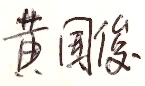 黄国俊